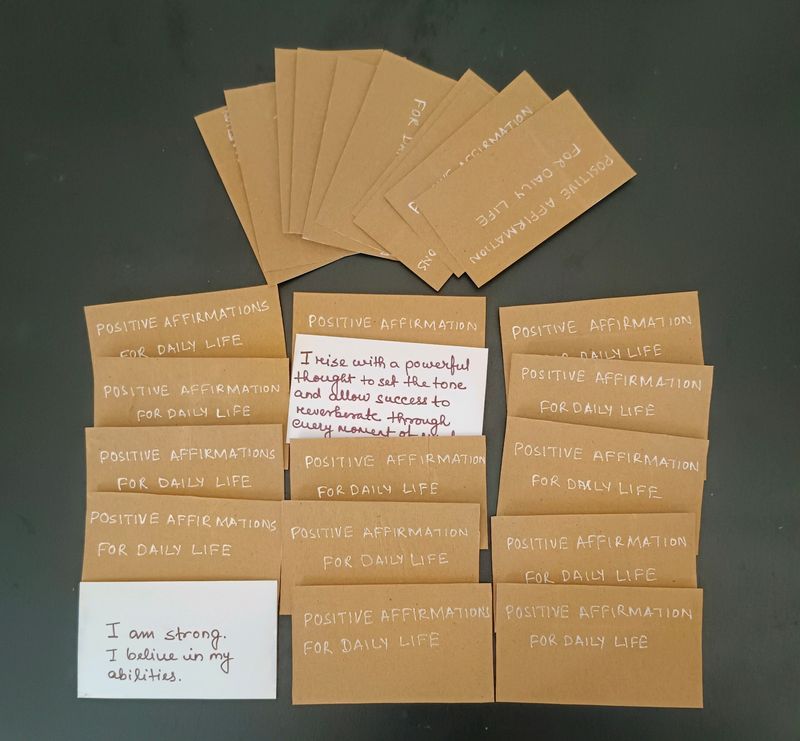 FOR DA
POSITIVE AFFIRMATION
FOR DAILY LIFE
ONS
POSITIVE AFFIRMATIONS
FOR DAILY LIFE
POSITIVE AFFIRMATION
FOR DAILY LIFE
POSITIVE AFFIRMATIONS
FOR DAILY LIFE
POSITIVE AFFIRMATIONS
FOR DAILY LIFE
I am strong.
I belive in my
abilities.
POSITIVE AFFIRMATION
I rise with a powerful
thought to set the tone
and allow success to
reverberate through
every moment of
POSITIVE AFFIRMATION
FOR DAILY LIFE
POSITIVE AFFIRMATION
FOR DAILY LIFE
POSITIVE AFFIRMATIONS
FOR DAILY LIFE
POSITIVE AFFIRMATION
FOR DAILY LIFE
POSITIVE AFFIRMATION
FOR DAILY LIFE
POSITIVE AFFIRMATION
FOR DAILY LIFE
POSITIVE AFFIRMATION
FOR DAILY LIFE
POSITIVE AFFIRMATION
FOR DAILY LIFE